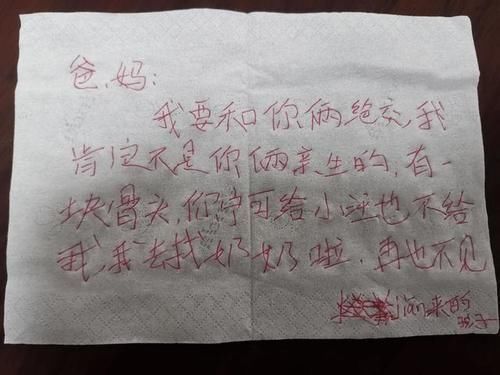 爸、妈:
我要和你俩绝交,我
肯定不是你俩亲生的,有一
块骨头,你宁可给小旺也不给
我,我去找奶奶啦,再也不见
jian来的
孩子